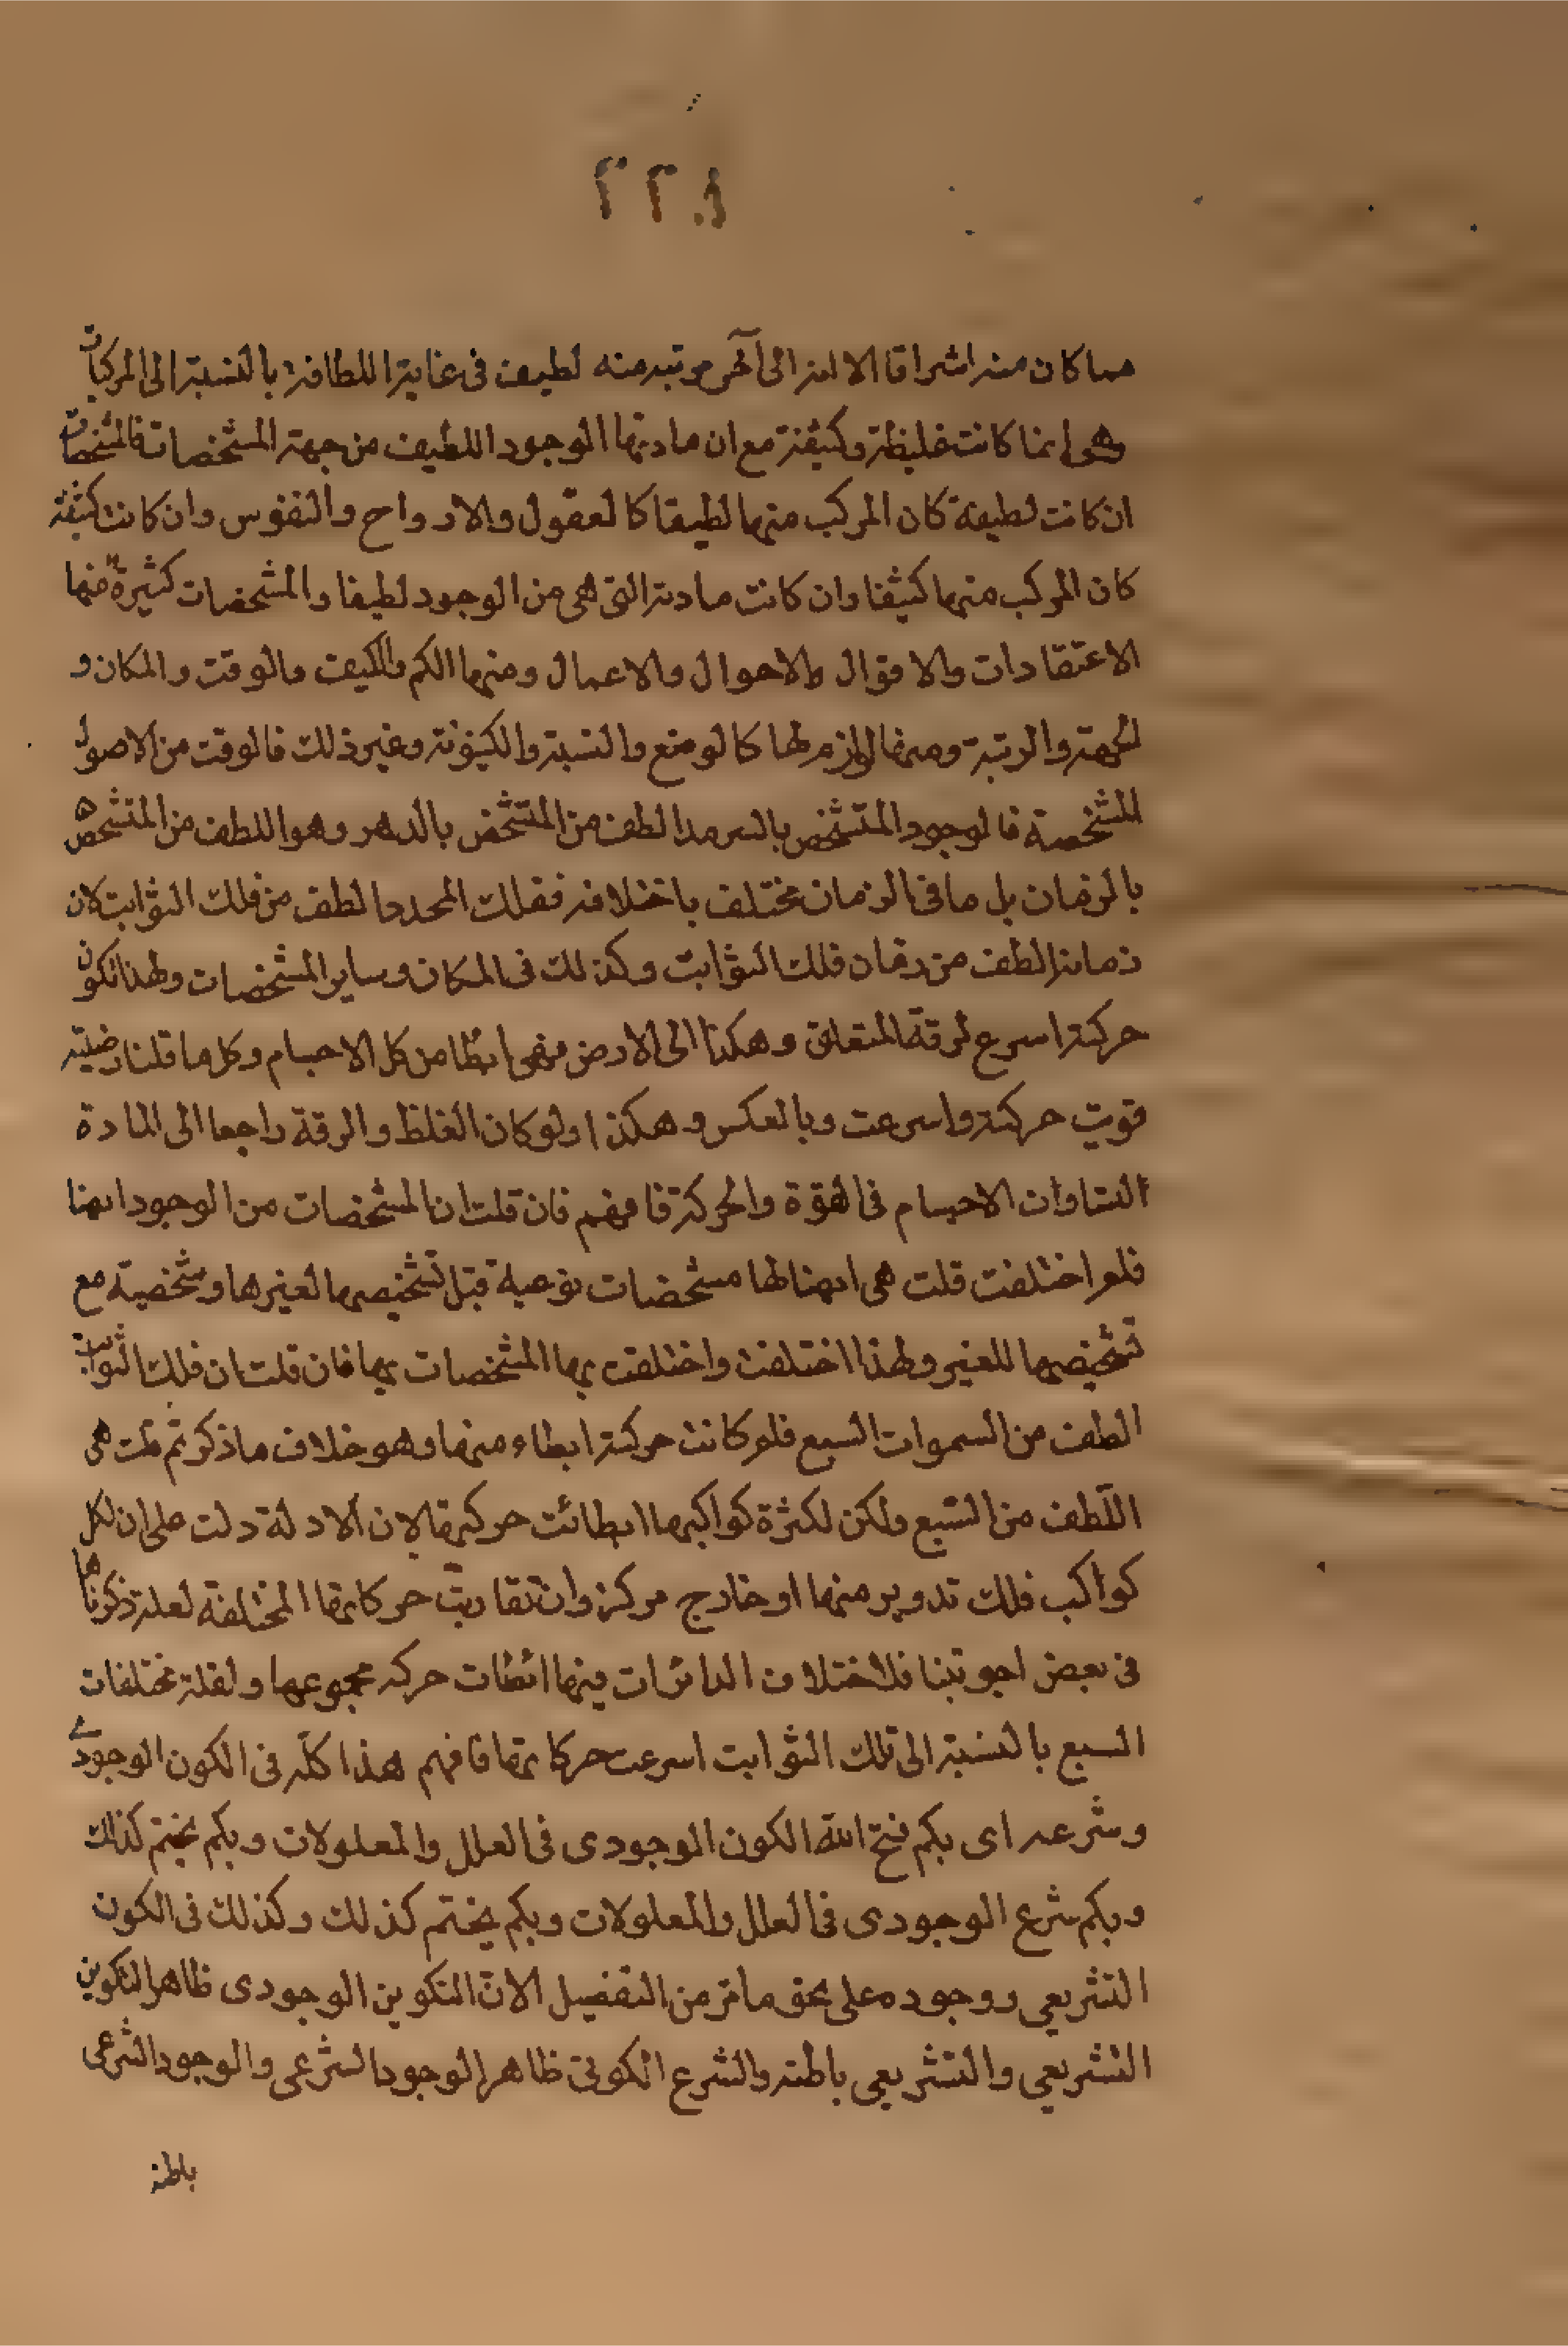 ٢٢١
مما كان منه اشراقا الا انه الى آخر مرتبه منه لطيف فى غاية اللطافة بالنسبة الى المركبات
وهى انما كانت غليظة وكثيفة مع ان مادتها الوجود اللطيف من جهة المشخصات فالمشخصات
ان كانت لطيفة كان المركب منها لطيفا كالعقول والارواح والنفوس وان كانت كثيفة
كان المركب منها كثيفا وان كانت مادته التى هى من الوجود لطيفا والمشخصات كثيرة منها
الاعتقادات والاقوال والاحوال والاعمال ومنها الكم والكيف والوقت والمكان و
الجهة والرتبة ومنها لوازم لها كالوضع والنسبة والكينونة وغير ذلك فالوقت من الاصول
المشخصة فالوجود المتشخص بالسرمد الطف من المتشخص بالدهر وهو اللطف من المتشخص
بالزمان بل ما فى الزمان مختلف باختلافه ففلك المحدد الطف من فلك الثوابت لان
زمانه الطف من زمان فلك الثوابت وكذلك فى المكان وساير المشخصات ولهذا تكون
حركته اسرع لرقة المتعلق وهكذا الى الارض فهى ابطا من كل الاجسام وكل ما قلنا رضيته
قويت حركته واسرعت وبالعكس وهكذا ولو كان الغلظ والرقة راجعا الى المادة
التساوات الاجسام فى القوة والحركة فافهم فان قلت ان المشخصات من الوجود ايضا
فلم اختلفت قلت هى ايضا لها مشخصات نوعية قبل تشخيصها لغيرها وشخصية مع
تشخيصها للغير ولهذا اختلفت واختلفت بها المشخصات بها فان قلت ان فلك الثوابت
الطف من السموات السبع فلم كانت حركته ابطاء منها وهو خلاف ما ذكرتم قلت هى
اللّطف من السّبع ولكن لكثرة كواكبها ابطائت حركتها لان الادلة دلت على ان لكل
كواكب فلك تدوير منها او خارج مركز وان تقاربت حركاتها المختلفة لعلة ذكرناها
فى بعض اجوبتنا فلاختلاف الدائرات فيها ابطات حركه مجموعها ولقلة مختلفات
السبع بالنسبة الى تلك الثوابت اسرعت حركاتها فافهم هذا كلّه فى الكون الوجودى
وشرعه اى بكم فتح اللّه الكون الوجودى فى العلل والمعلولات وبكم يختم كذلك
وبكم شرع الوجودى فى العلل والمعلولات وبكم يختم كذلك وكذلك فى الكون
التشريعى ووجوده على نحو ما مر من التفصيل الا ان التكوين الوجودى ظاهر التكوين
التشريعى والتشريعى باطنه والشرع الكونى ظاهر الوجود الشرعى والوجود الشرعى
باطنه